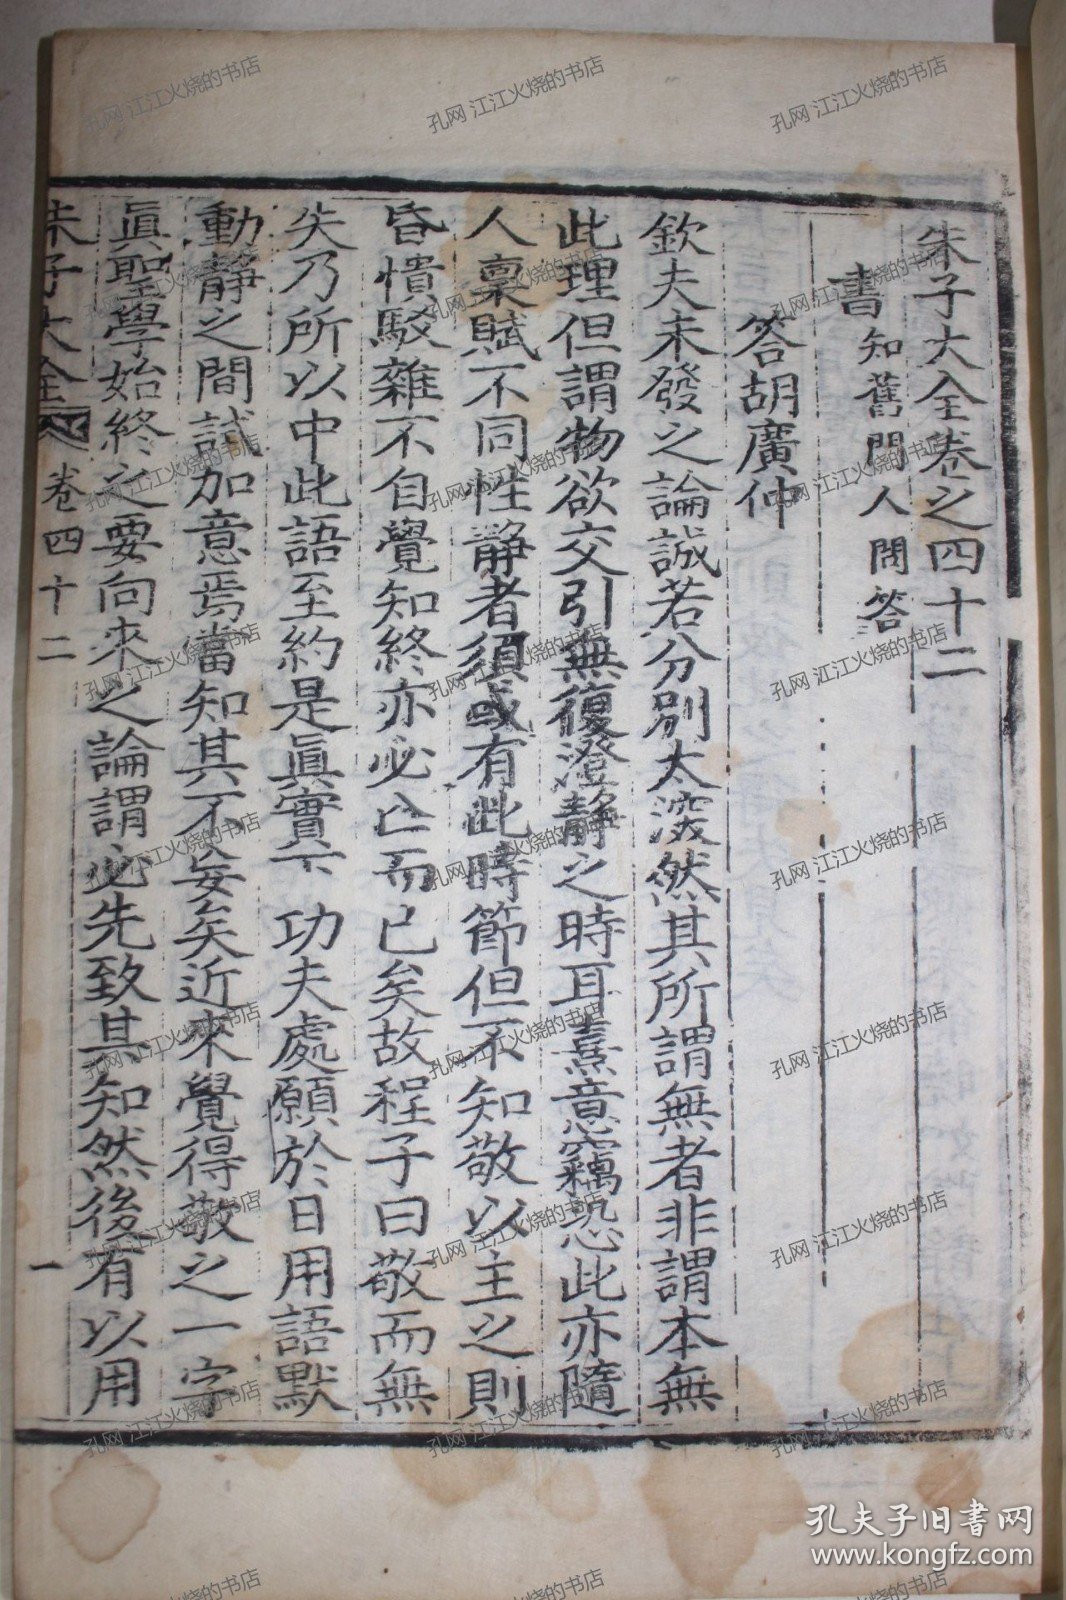 朱子大全卷之四十二
書知舊門人問答
答胡廣仲
欽夫未發之論誠若分別太深然其所謂無者非謂本無
此理但謂物欲交引無復澄靜之時耳熹意竊恐此亦隨
人稟賦不同性靜者須或有此時節但不知敬以主之則
昏憒駁雜不自覺知終亦必亡而已矣故程子曰敬而無
失乃所以中此語至約是眞實下功夫處願於日用語默
動靜之間試加意焉當知其不妄矣近來覺得敬之一字
眞聖學始終之要向來之論謂必先致其知然後有以用
朱子大全 卷四十二 一
孔网 江江火烧的书店
孔夫子旧书网
www.kongfz.com